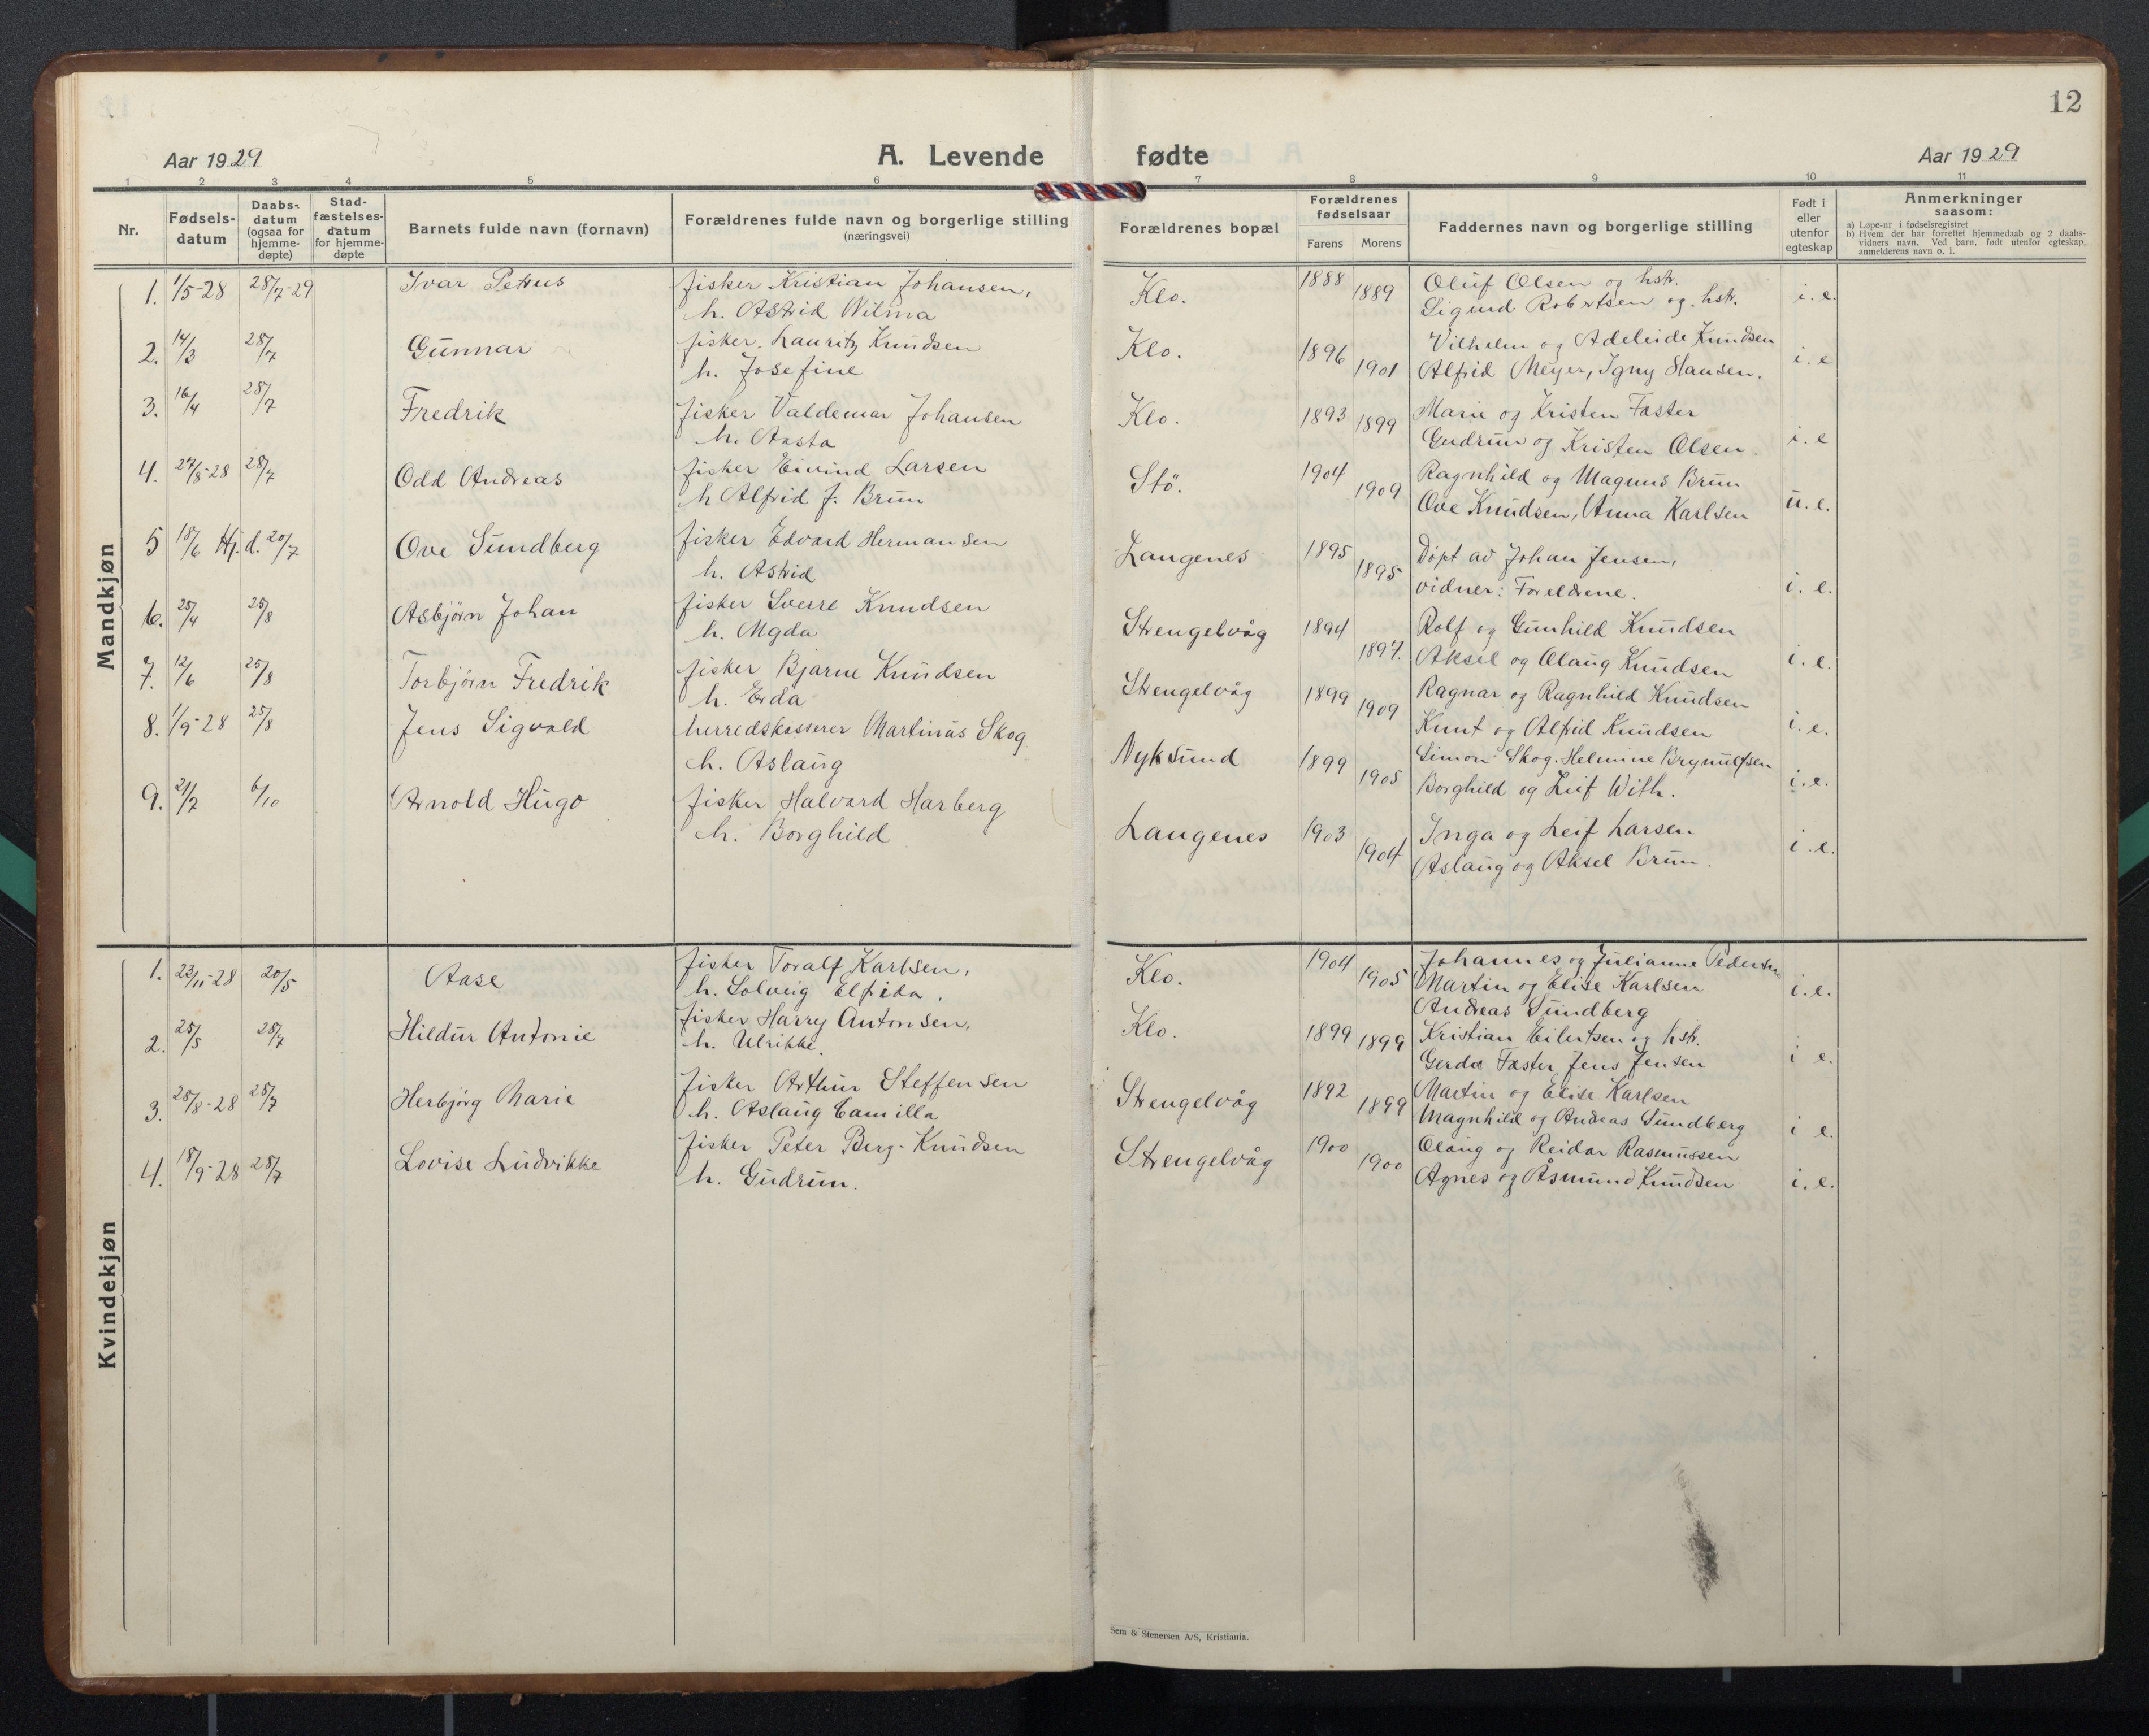 12
Aar 1929
A. Levende
fødte
Aar 1929
1 2 3 4 5 6 7 8 9 10 11
Nr.
Fødsels-
datum
Daabs-
datum
(ogsaa for
hjemme-
døpte)
Stad-
fæstelses-
datum
for hjemme-
døpte
Barnets fulde navn (fornavn)
Forældrenes fulde navn og borgerlige stilling
(næringsvei)
Forældrenes bopæl
Forældrenes
fødselsaar
Farens Morens
Faddernes navn og borgerlige stilling
Født i
eller
utenfor
egteskap
Anmerkninger
saasom:
a) Løpe-nr i fødselsregistret
b) Hvem der har forrettet hjemmedaab og 2 daabs-
vidners navn. Ved barn, født utenfor egteskap,
anmelderens navn o. l.
Mandkjøn
1. 1/5-28 28/7-29 Ivar Petrus fisker Kristian Johansen, Klo. 1888 1889 Oluf Olsen og hstr. i. e.
h. Astrid Wilma Sigurd Robertsen og hstr.
2. 14/3 28/7 Gunnar fisker Lauritz Knudsen Klo. 1896 1901 Vilhelm og Adeleide Knudsen i. e
h. Josefine Alfrid Meyer, Igny Hansen.
3. 16/4 28/7 Fredrik fisker Valdemar Johansen Klo. 1893 1899 Marie og Kristen Faster i. e
h. Aasta Gudrun og Kristen Olsen.
4. 27/8-28 28/7 Odd Andreas fisker Eivind Larsen Stö. 1904 1909 Ragnhild og Magnus Brun u. e.
h Alfrid J. Brun Ove Knudsen, Anna Karlsen
5 18/6 Hj. d. 20/7 Ove Sundberg fisker Edvard Hermansen Langenes 1895 1895 Döpt av Johan Jensen, i. e.
h. Astrid vidner: Foreldrene.
6. 25/4 25/8 Asbjörn Johan fisker Sverre Knudsen Strengelvåg 1894 1897. Rolf og Gunhild Knudsen i. e.
h. Magda Aksel og Olaug Knudsen
7. 12/6 25/8 Torbjörn Fredrik fisker Bjarne Knudsen Strengelvåg 1899 1909 Ragnar og Ragnhild Knudsen i. e.
h. Erda Knut og Alfrid Knudsen
8. 1/9-28 25/8 Jens Sigvald herredskasserer Martinus Skog Nyksund 1899 1905 Simon Skog. Helmine Brynulfsen i. e.
h. Aslaug Borghild og Leif With.
9. 21/7 6/10 Arnold Hugo fisker Halvard Harberg Langenes 1903 1904 Inga og Leif Larsen i. e.
h. Borghild Aslaug og Aksel Brun.
Kvindekjøn
1. 23/11-28 20/5 Aase fisker Toralf Karlsen, Klo. 1904 1905 Johannes og Julianne Pedersen i. e.
h. Solveig Elfrida. Martin og Elise Karlsen
Andreas Sundberg
2. 25/5 28/7 Hildur Antonie fisker Harry Antonsen, Klo. 1899 1899 Kristian Eilertsen og hstr. i e.
h. Ulrikke. Gerda Faster Jens Jensen
3. 28/8-28 28/7 Herbjörg Marie fisker Arthur Steffensen Strengelvåg 1892 1899 Martin og Elise Karlsen i e.
h. Aslaug Camilla Magnhild og Andreas Sundberg
4. 18/9-28 28/7 Lovise Ludvikke fisker Peter Berg-Knudsen Strengelvåg 1900 1900 Olaug og Reidar Rasmussen i. e.
h. Gudrun. Agnes og Åsmund Knudsen
Sem & Stenersen A/S, Kristiania.